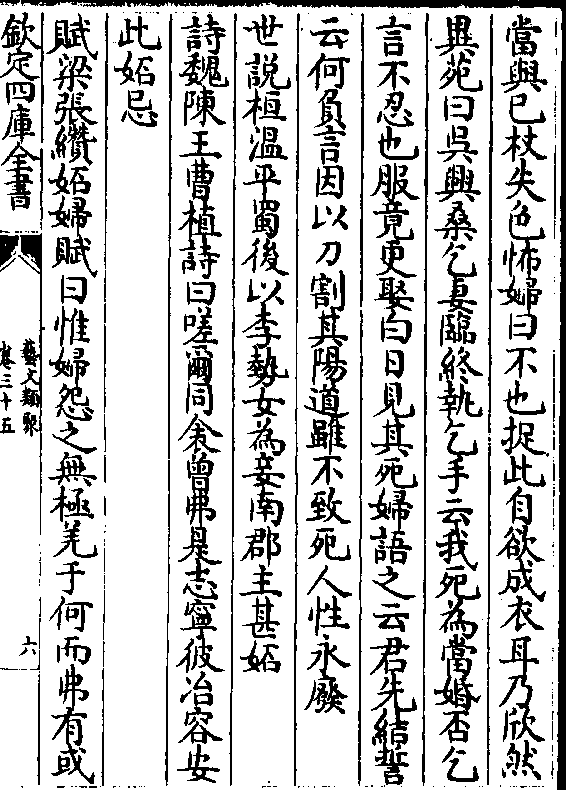 當與已杖失色怖婦曰不也捉此自欲成衣耳乃欣然
異苑曰吳興桑乞妻臨終執乞手云我死為當婚否乞
言不忍也服竟更娶白日見其死婦語之云君先結誓
云何負言因以刀割其陽道雖不致死人性永廢
世說桓溫平蜀後以李勢女為妾南郡主甚妬
詩魏陳王曹植詩曰嗟爾同衾曾弗是志寧彼冶容安
此妬忌
賦梁張纘妬婦賦曰惟婦怨之無極羌于何而弗有或
欽定四庫全書
藝文類聚
卷三十五
六